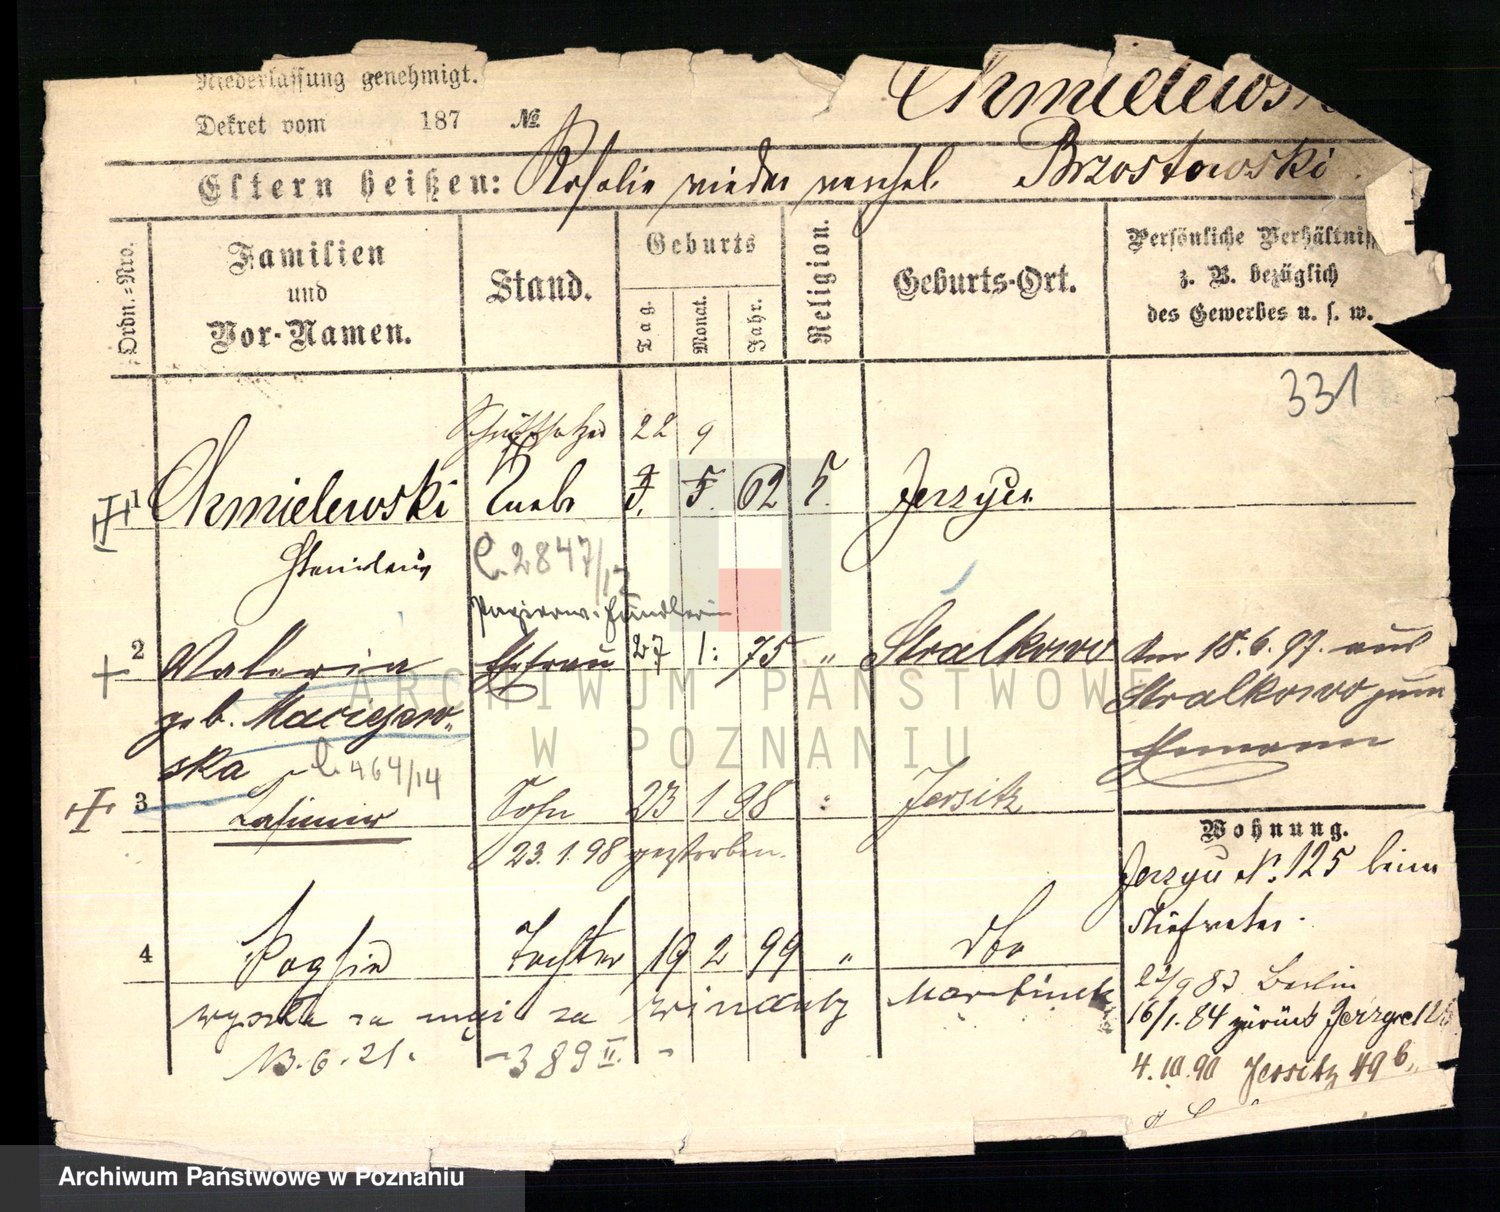 Niederlassung genehmigt.
Chmielewski
Dekret vom 187 №
Eltern heißen: Rosalie wieder verehel. Brzostowski.
Ordn.-Nro.
Familien
und
Vor-Namen.
Stand.
Geburts
Tag.
Monat.
Jahr.
Religion.
Geburts-Ort.
Persönliche Verhältniss
z. B. bezüglich
des Gewerbes u. s. w.
331
22 9
1 Chmielewski Knabe 5. 62 Jerzyce
Stanislaus
2847/12
Papierw. Händlerin
2 Valeria Ehefrau 27 1. 75 " Stralkowo
geb. Maciejew-
ska
464/14
den 18.6.97. aus
Stralkowo zum
Ehemann
3 Casimir Sohn 23 1 98 " Jersitz
23.1.98 gestorben.
4 Tochter 19 2 99 " dto
wyszła za mąż za Martinek
13.6.21. - 389 II. -
Wohnung.
Jerzyce N. 125 beim
Stiefvater.
22/9 83 Berlin
16/1.84 zurück Jerzyce 125
4.10.90 Jersitz 49 b.
ARCHIWUM PAŃSTWOWE
W POZNANIU
Archiwum Państwowe w Poznaniu